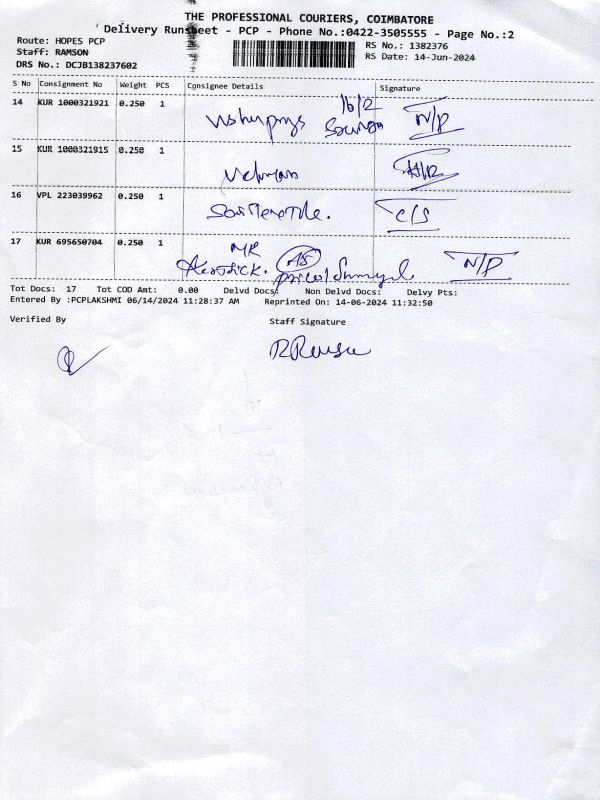 THE PROFESSIONAL COURIERS, COIMBATORE
Delivery Runsheet - PCP - Phone No.:0422-3505555 - Page No.:2
Route: HOPES PCP
RS No.: 1382376
Staff: RAMSON
RS Date: 14-Jun-2024
DRS No.: DCJB138237602
S No Consignment No Weight PCS Consignee Details Signature
14 KUR 1000321921 0.250 1 N/P
15 KUR 1000321915 0.250 1
16 VPL 223039962 0.250 1 C/S
17 KUR 695650704 0.250 1 MR N/P
Tot Docs: 17 Tot COD Amt: 0.00 Delvd Docs: Non Delvd Docs: Delvy Pts:
Entered By :PCPLAKSHMI 06/14/2024 11:28:37 AM Reprinted On: 14-06-2024 11:32:50
Verified By Staff Signature